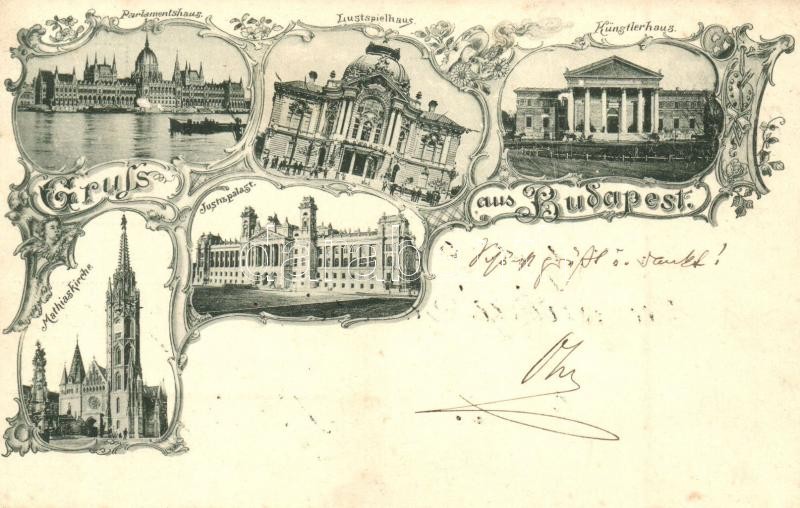 Parlamentshaus.
Lustspielhaus.
Künstlerhaus.
Gruss aus Budapest.
Justizpalast.
Mathiaskirche.
grüßt u. dankt!